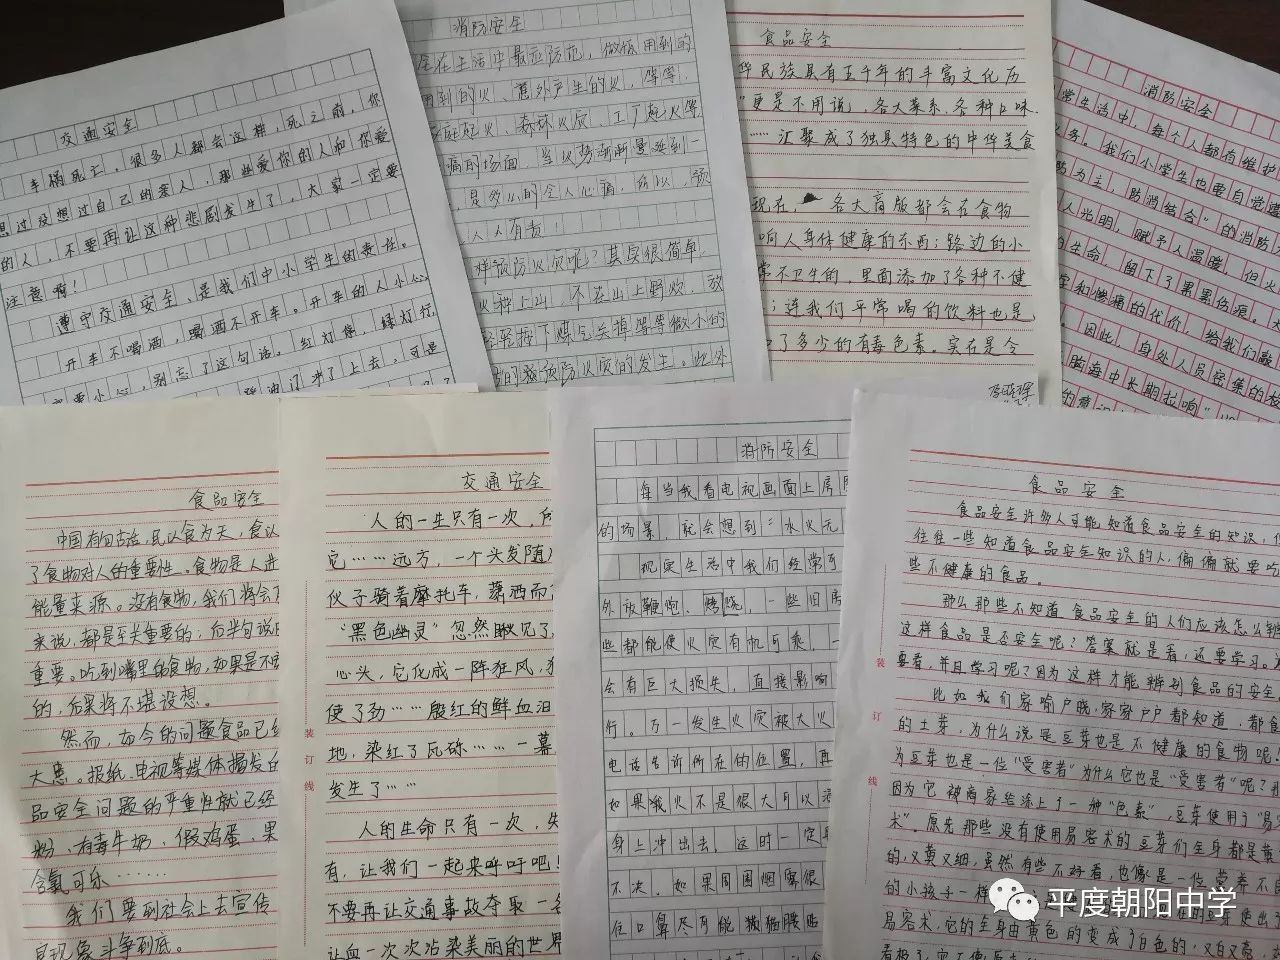 交通安全
车祸死亡，很多人都会这样，死之前，你
想过没想过自己的亲人，那些爱你的人和你爱
的人，不要再让这种悲剧发生了，大家一定要
注意啊！
遵守交通安全、是我们中小学生的责任。
开车不喝酒，喝酒不开车。开车的人小心
要小心，别忘了这句话。红灯停，绿灯行
消防安全
在生活中最应防范，做饭用到的
用到的火、意外产生的火，等等，
庭起火、森林火灾、工厂起火等
痛的场面，当火势渐渐蔓延到一
，是多么的令人心痛，所以，预
人人有责！
样预防火灾呢？其实很简单，
火种上山，不在山上野炊，放
轻轻按下煤气关掉等等做小的
预防火灾的发生。此外
食品安全
华民族具有五千年的丰富文化历
"更是不用说，各大菜系、各种口味
……汇聚成了独具特色的中华美食
现在，各大商贩都会在食物
响人身体健康的东西；路边的小
常不卫生的，里面添加了各种不健
；连我们平常喝的饮料也是
了多少的有毒色素。实在是令
消防安全
常生活中，每个人都有维护
义务。我们小学生也要自觉遵
防为主，防消结合"的消防
人光明，赋予人温暖，但火
的生命，留下了累累伤痕。
和惨痛的代价，给我们敲
。因此，身处人员密集的
脑海中长期拉响"
食品安全
中国有句古话，民以食为天，食以
了食物对人的重要性。食物是人进
能量来源。没有食物，我们将会
来说，都是至关重要的；后半句说
重要。吃到嘴里的食物，如果是不
的，后果将不堪设想。
然而，如今的问题食品已经
大患。报纸、电视等媒体揭发的
品安全问题的严重性就已经
粉、有毒牛奶、假鸡蛋，果
含氯可乐……
我们要到社会上去宣传
现象斗争到底。
交通安全
人的一生只有一次，
它……远方，一个头发随
伙子骑着摩托车，潇洒而
"黑色幽灵"忽然瞅见了
心头，它化成一阵狂风，
使了劲……殷红的鲜血汩
地，染红了瓦砾……一幕
发生了……
人的生命只有一次，失
有，让我们一起来呼吁吧！
不要再让交通事故夺取一
让血一次次沾染美丽的世界
装
订
线
消防安全
每当我看电视画面上房
的场景，就会想到：水火无
现实生活中我们经常可
外放鞭炮、烧烧，一些旧房
些都能使火灾有机可乘，一
会有巨大损失，直接影响
行。万一发生火灾被大火
电话告诉所在的位置，再
如果火不是很大可以
身上冲出去，这时一定
不决，如果周围烟雾很
住口鼻尽可能猫腰贴
食品安全
食品安全许多人可能知道食品安全的知识，但
往往一些知道食品安全知识的人，偏偏就要吃
些不健康的食品。
那么那些不知道食品安全的人们应该怎么辨
这样食品是否安全呢？答案就是看，还要学习。为
要看，并且学习呢？因为这样才能辨别食品的安全
比如我们家喻户晓，家家户户都知道，都食
的土芽，为什么说是豆芽也是不健康的食物呢！
为豆芽也是一位"受害者"为什么它也是"受害者"呢？
因为它被商家给涂上了一种"色素"，豆芽使用了"易容
术"。原先那些没有使用易容术的豆芽们全身都是黄
的，又黄又细，虽然有些不好看，也像是一位营养不良
的小孩子一样
易容术，它的全身由黄色的变成了白色的，又白又
装
订
线
平度朝阳中学